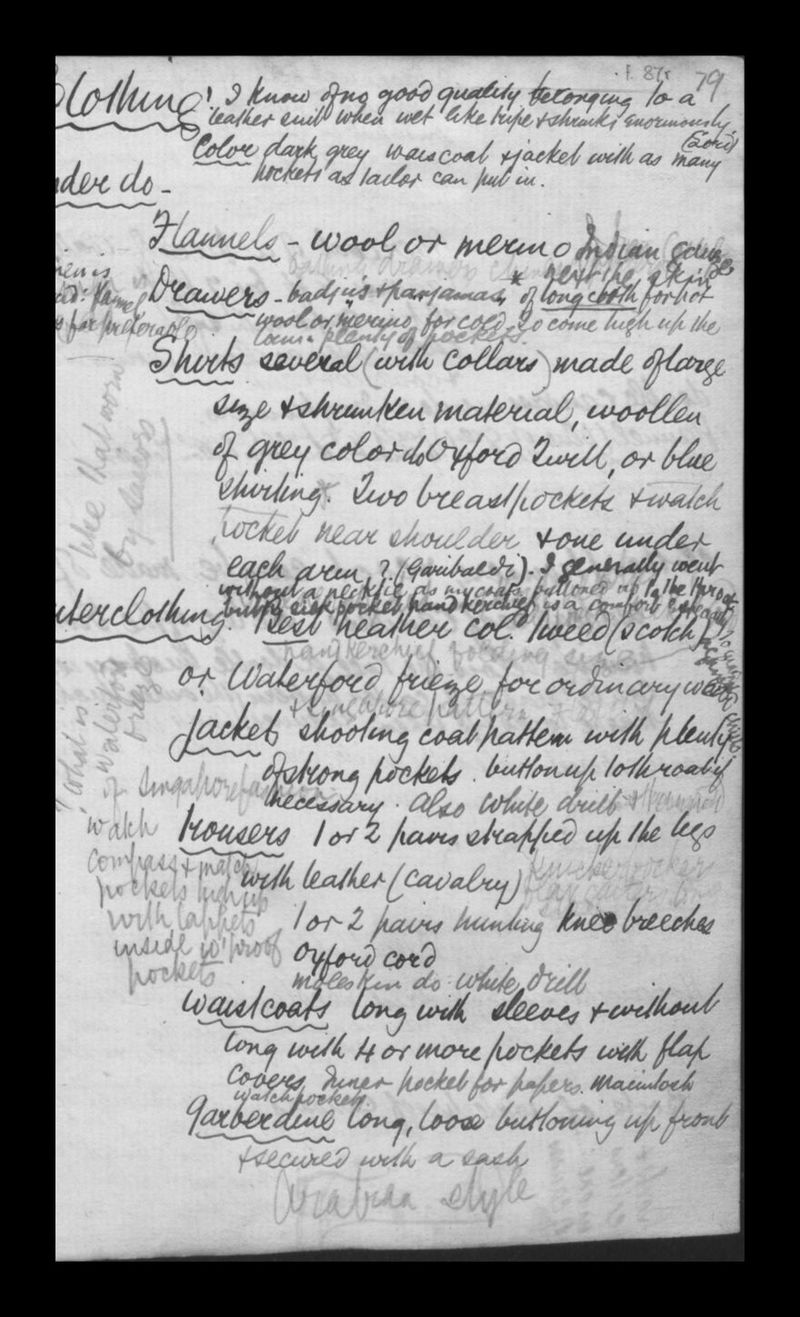 f. 87r 79
Clothing! I know of no good quality belonging to a
leather suit when wet like tripe & shrinks enormously.
(Lord)
Color dark grey waistcoat & jacket with as many
pockets as tailor can put in.
Under do-
Flannels - wool or merino Indian gauze
next the skin
Drawers - badjus & panjamas, of long cloth for hot
wool or merino for cold, to come high up the
plenty of pockets.
far preferable
Shirts several (with collars) made of large
size & shrunken material, woollen
of grey color do Oxford Twill, or blue
shirting. Two breast pockets & watch
pocket near shoulder & one under
each arm? (Garibaldi). I generally went
without a necktie as my coats buttoned up to the throat
but a silk pocket handkerchief is a comfort
like that worn
by sailors
Outerclothing. Best heather col. Tweed (Scotch)
handkerchief folding
or Waterford frieze for ordinary wear
What is
Waterford
frieze
jackets shooting coat pattern with plenty
of strong pockets. button up to throat if
necessary. also white drill
of Singapore fashion
trousers 1 or 2 pairs strapped up the legs
with leather (cavalry)
Knickerbocker
watch
compass & match
pockets high up
with lappets
inside w'proof
pockets
1 or 2 pairs hunting knee breeches
Oxford cord
moleskin do. white drill
Waistcoats long with sleeves & without
long with 4 or more pockets with flap
covers, Inner pocket for papers. macintosh
watch pockets.
Garberdine long, loose buttoning up front
& secured with a sash
Arabian style